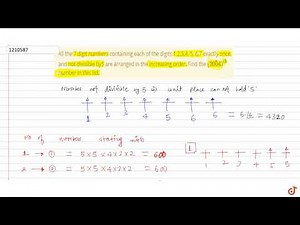 1210587
All the 7 digit numbers containing each of the digits 1,2,3,4, 5, 6,7 exactly once,
and not divisible by 5 are arranged in the increasing order. Find the
number in this list.
Number not divisible by 5 unit place can not hold '5'
1 2 3 4 5 6 = 4320
no of number starting with
1 → = 5×5×4×3×2 = 600
2 → = 5×5×4×3×2 = 600
1
1 2 3